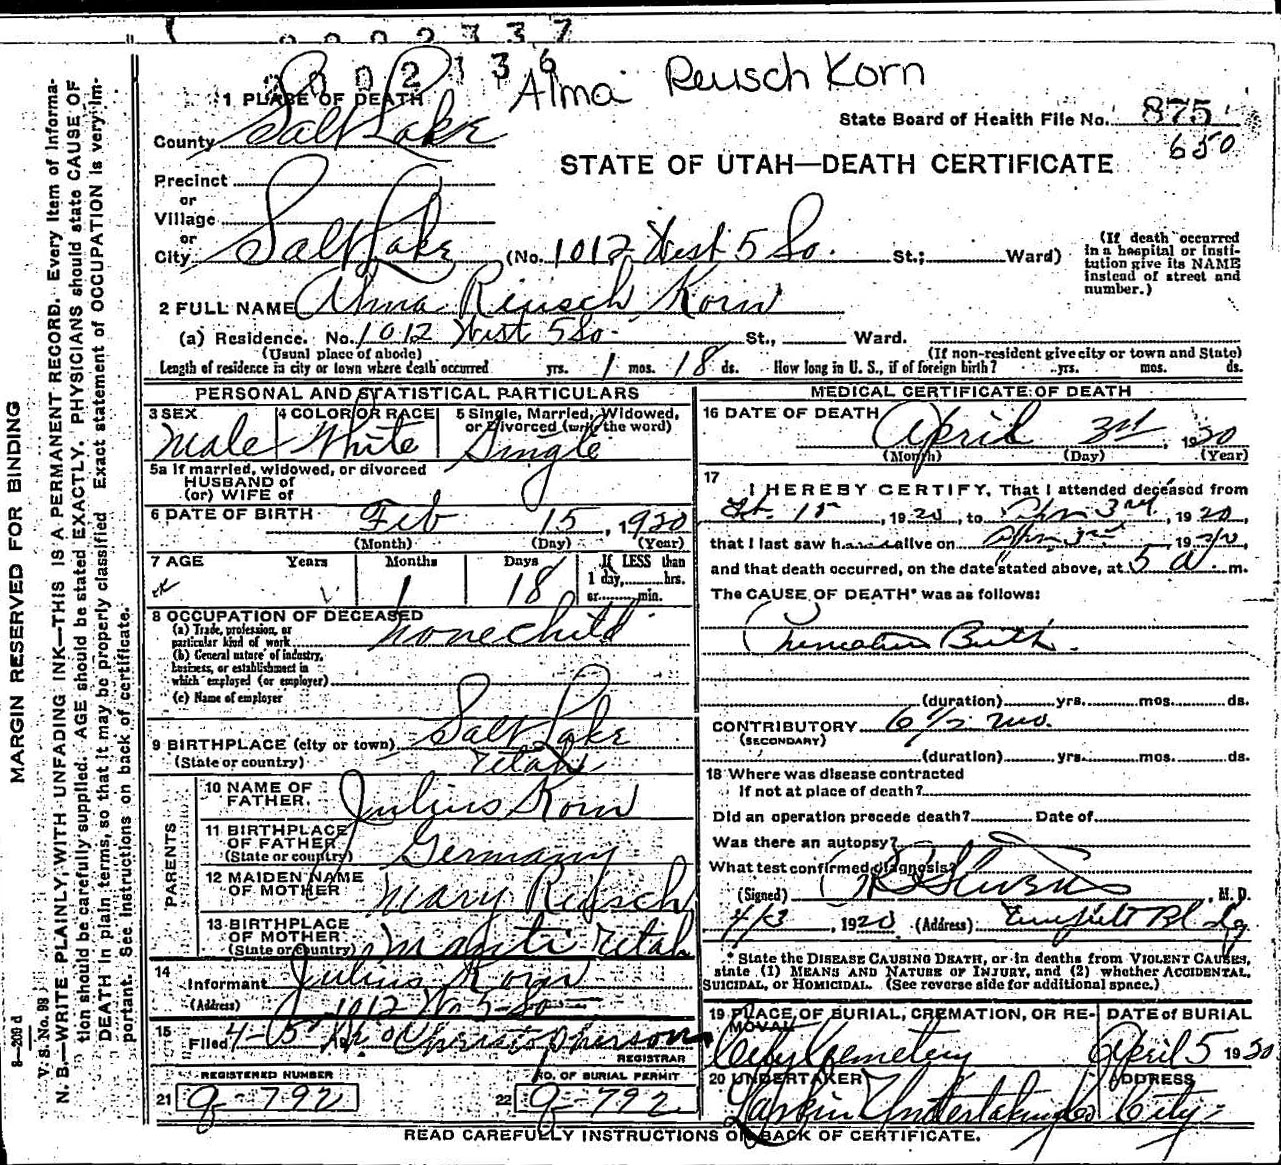 0002337
0002136
Alma Reusch Korn
1 PLACE OF DEATH
County Salt Lake
State Board of Health File No. 875
650
STATE OF UTAH—DEATH CERTIFICATE
Precinct
or
Village
or
City Salt Lake (No. 1012 West 5 So. St.; Ward)
(If death occurred in a hospital or insti-
tution give its NAME instead of street and number.)
2 FULL NAME Alma Reusch Korn
(a) Residence. No. 1012 West 5 So. St., Ward.
(Usual place of abode) (If non-resident give city or town and State)
Length of residence in city or town where death occurred yrs. 1 mos. 18 ds. How long in U. S., if of foreign birth? yrs. mos. ds.
PERSONAL AND STATISTICAL PARTICULARS
3 SEX Male
4 COLOR OR RACE White
5 Single, Married, Widowed,
or Divorced (write the word)
Single
5a If married, widowed, or divorced
HUSBAND of
(or) WIFE of
6 DATE OF BIRTH Feb 15, 1920
(Month) (Day) (Year)
7 AGE Years Months Days If LESS than
1 18 1 day, hrs.
or min.
8 OCCUPATION OF DECEASED
(a) Trade, profession, or
particular kind of work none child
(b) General nature of industry,
business, or establishment in
which employed (or employer)
(c) Name of employer
9 BIRTHPLACE (city or town) Salt Lake
(State or country) Utah
PARENTS
10 NAME OF
FATHER. Julius Korn
11 BIRTHPLACE
OF FATHER Germany
(State or country)
12 MAIDEN NAME
OF MOTHER Mary Reusch
13 BIRTHPLACE
OF MOTHER
(State or country) Manti Utah
14
Informant Julius Korn
(Address) 1012 W 5 So
15
Filed 4-5 Christopherson
REGISTRAR
REGISTERED NUMBER
21 792
NO. OF BURIAL PERMIT
22 792
MEDICAL CERTIFICATE OF DEATH
16 DATE OF DEATH April 3rd, 1920
(Month) (Day) (Year)
17
I HEREBY CERTIFY, That I attended deceased from
Feb. 15, 1920, to Apr 3rd, 1920,
that I last saw h alive on Apr 3rd 1920,
and that death occurred, on the date stated above, at 5 a. m.
The CAUSE OF DEATH* was as follows:
Premature Birth.
(duration) yrs. mos. ds.
CONTRIBUTORY 6 1/2 mo.
(SECONDARY)
(duration) yrs. mos. ds.
18 Where was disease contracted
If not at place of death?
Did an operation precede death? Date of
Was there an autopsy?
What test confirmed diagnosis?
(Signed) Stevens, M. D.
4/3, 1920 (Address) Bldg
* State the DISEASE CAUSING DEATH, or in deaths from VIOLENT CAUSES,
state (1) MEANS AND NATURE OF INJURY, and (2) whether ACCIDENTAL,
SUICIDAL, or HOMICIDAL. (See reverse side for additional space.)
19 PLACE OF BURIAL, CREMATION, OR RE-
MOVAL
City Cemetery
DATE of BURIAL
April 5 1920
20 UNDERTAKER
Larkin Undertaking Co
ADDRESS
City
READ CAREFULLY INSTRUCTIONS ON BACK OF CERTIFICATE.
MARGIN RESERVED FOR BINDING
8—209 d
V. S. No. 98
N. B.—WRITE PLAINLY, WITH UNFADING INK—THIS IS A PERMANENT RECORD. Every item of informa-
tion should be carefully supplied. AGE should be stated EXACTLY. PHYSICIANS should state CAUSE OF
DEATH in plain terms, so that it may be properly classified. Exact statement of OCCUPATION is very im-
portant. See instructions on back of certificate.